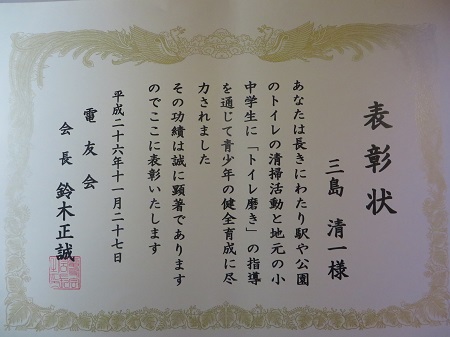 表彰状
三島 清一様
あなたは長きにわたり駅や公園
のトイレの清掃活動と地元の小
中学生に「トイレ磨き」の指導
を通じて青少年の健全育成に尽
力されました
その功績は誠に顕著であります
のでここに表彰いたします
平成二十六年十一月二十七日
電友会
会長 鈴木正誠